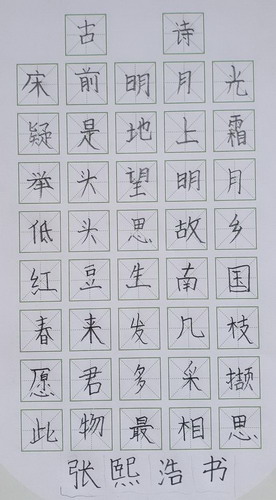 古诗
床前明月光
疑是地上霜
举头望明月
低头思故乡
红豆生南国
春来发几枝
愿君多采撷
此物最相思
张熙浩书